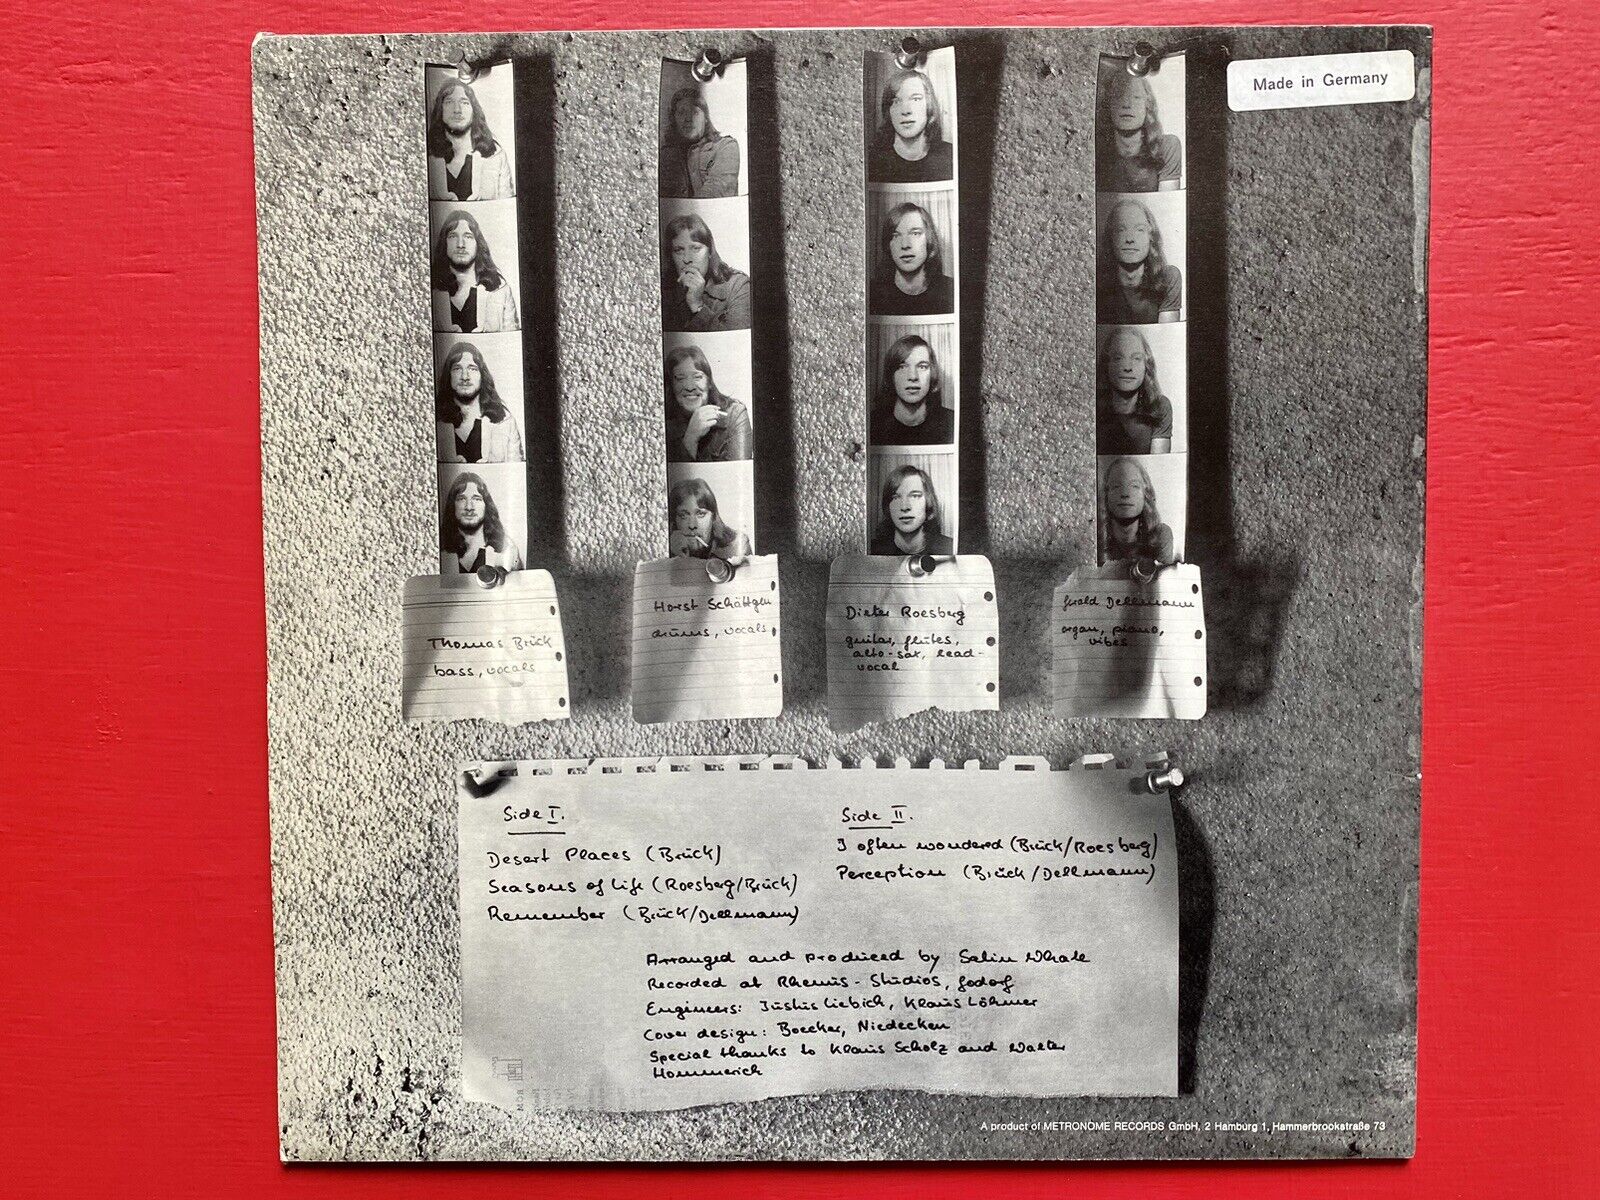 Made in Germany
Thomas Brück
bass, vocals
Horst Schättgen
drums, vocals
Dieter Roesberg
guitar, flutes,
alto-sax, lead-
vocal
Gerald Dellmann
organ, piano,
vibes
Side I.
Desert Places (Brück)
Seasons of Life (Roesberg/Brück)
Remember (Brück/Dellmann)
Side II.
I often wondered (Brück/Roesberg)
Perception (Brück/Dellmann)
Arranged and produced by Satin Whale
Recorded at Rhenus-Studios, Godorf
Engineers: Justus Liebich, Klaus Löhmer
Cover design: Boecker, Niedecken
Special thanks to Klaus Scholz and Walter
Hommerich
A product of METRONOME RECORDS GmbH, 2 Hamburg 1, Hammerbrookstraße 73